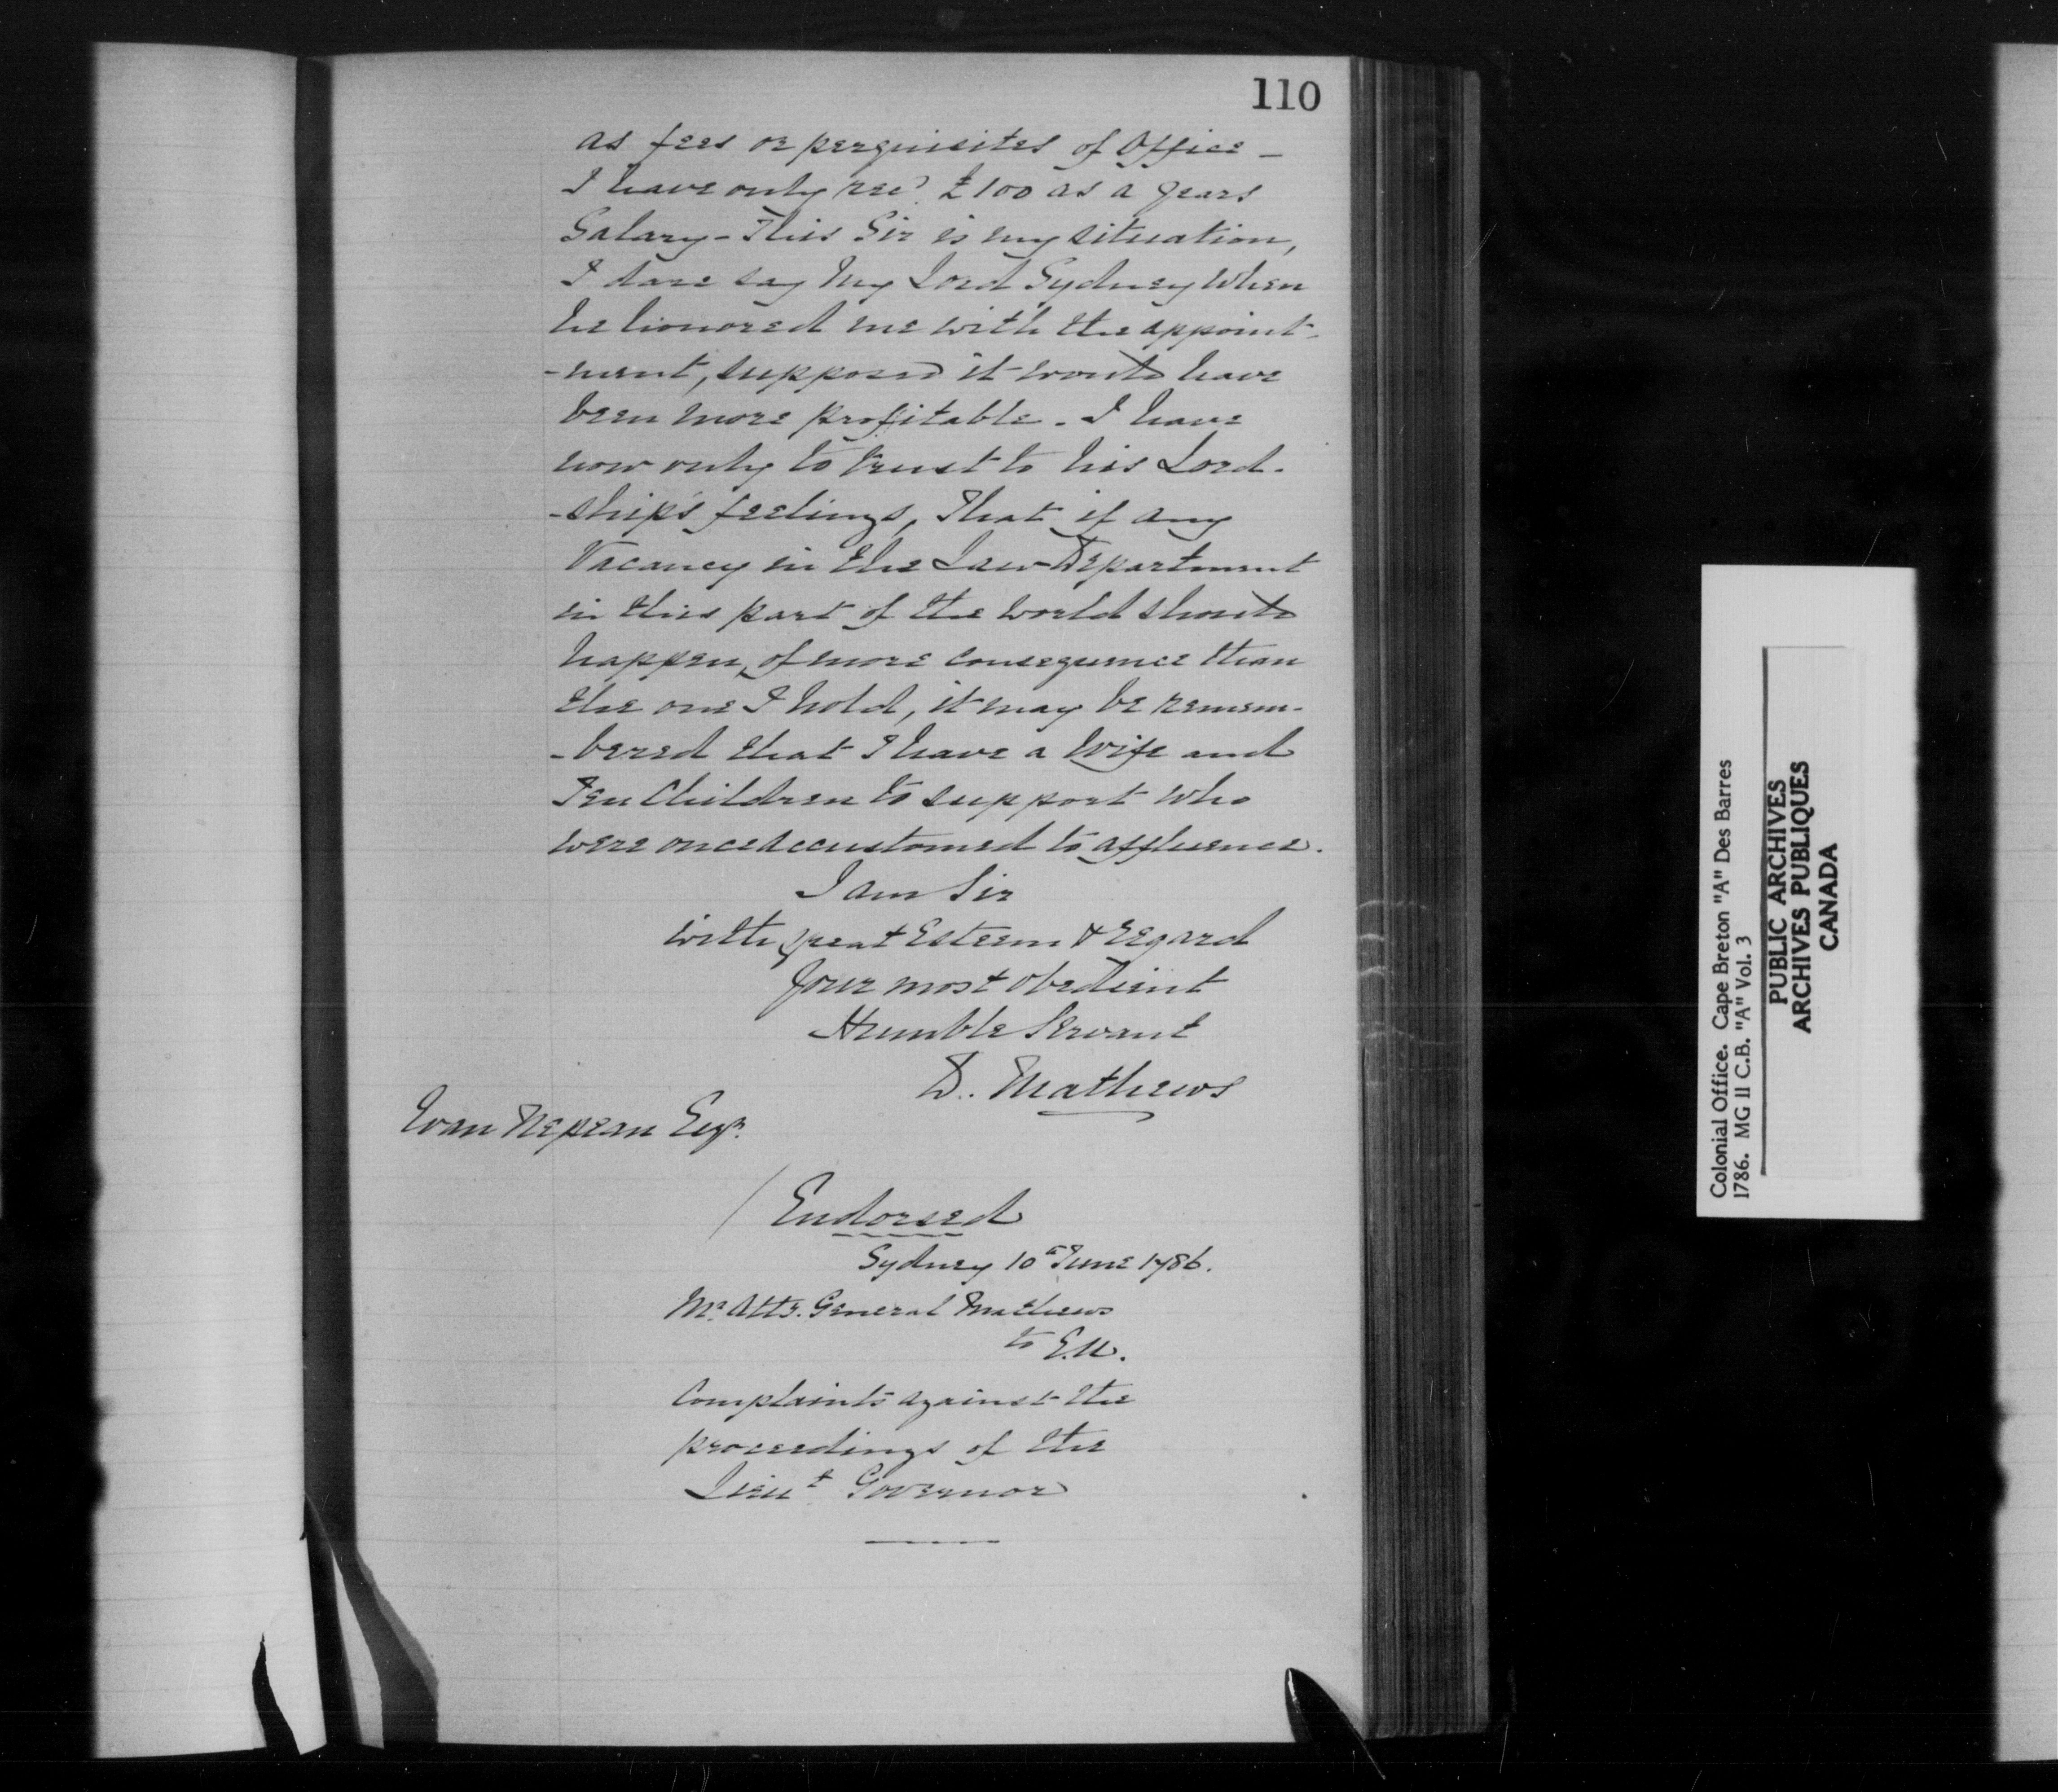 110
as fees or perquisites of Office -
I have only recd. £100 as a years
Salary - This Sir is my situation,
I dare say My Lord Sydney when
he honored me with the appoint-
-ment, supposed it would have
been more profitable. I have
now only to trust to his Lord-
-ship's feelings, That if any
Vacancy in the Law-Department
in this part of the world should
happen, of more consequence than
the one I hold, it may be remem-
-bered that I have a Wife and
Ten Children to support who
were once accustomed to affluence.
I am Sir
with great Esteem & Regard
Your most obedient
Humble Servant
D. Mathews
Evan Nepean Esqr.
/ Endorsed
Sydney 10th June 1786.
Mr. Atty. General Mathews
to E.N.
Complaints against the
proceedings of the
Lieut Governor
Colonial Office. Cape Breton "A" Des Barres
1786. MG II C.B. "A" Vol. 3
PUBLIC ARCHIVES
ARCHIVES PUBLIQUES
CANADA